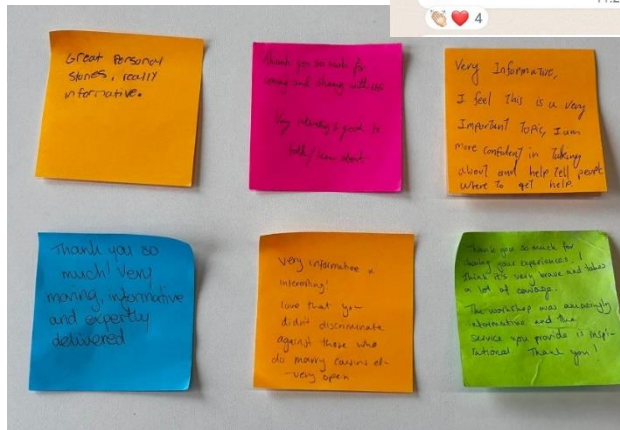 4
Great Personal
Stories, really
informative.
Thank you so much for
and sharing with us
Very interesting & good to
talk/learn about
Very Informative,
I feel This is a very
Important Topic, I am
more confident in Talking
about and help Tell people
where To get help.
Thank you so
much! Very
moving, informative
and expertly
delivered
Very informative &
interesting!
love that you
didn't discriminate
against those who
do marry cousins etc
- very open
Thank you so much for
your experiences. I
think it's very brave and takes
a lot of courage.
The workshop was amazingly
informative and the
service you provide is inspi-
rational Thank you!